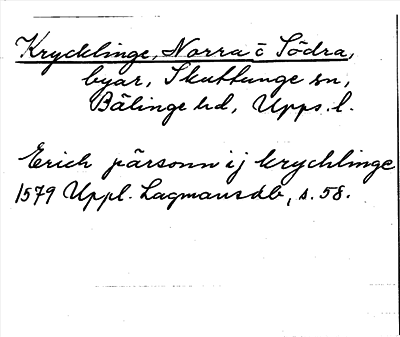 Krycklinge, Norra o Södra,
byar, Skuttunge sn,
Bälinge hd, Upps. l.
Erich pärsonn ij krychlinge
1579 Uppl. Lagmansdb, s. 58.